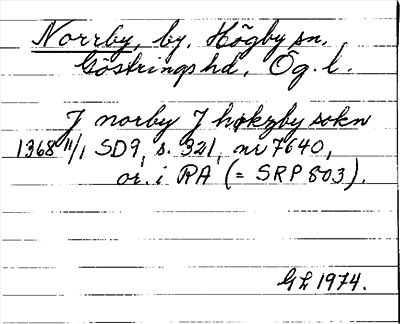 Norrby, by, Högby sn.
Göstrings hd, Ög. l.
J norby J høkzby sokn
1368 11/1 SD9, s. 321, nr 7640,
or. i RA (= SRP 803).
GL 1974.